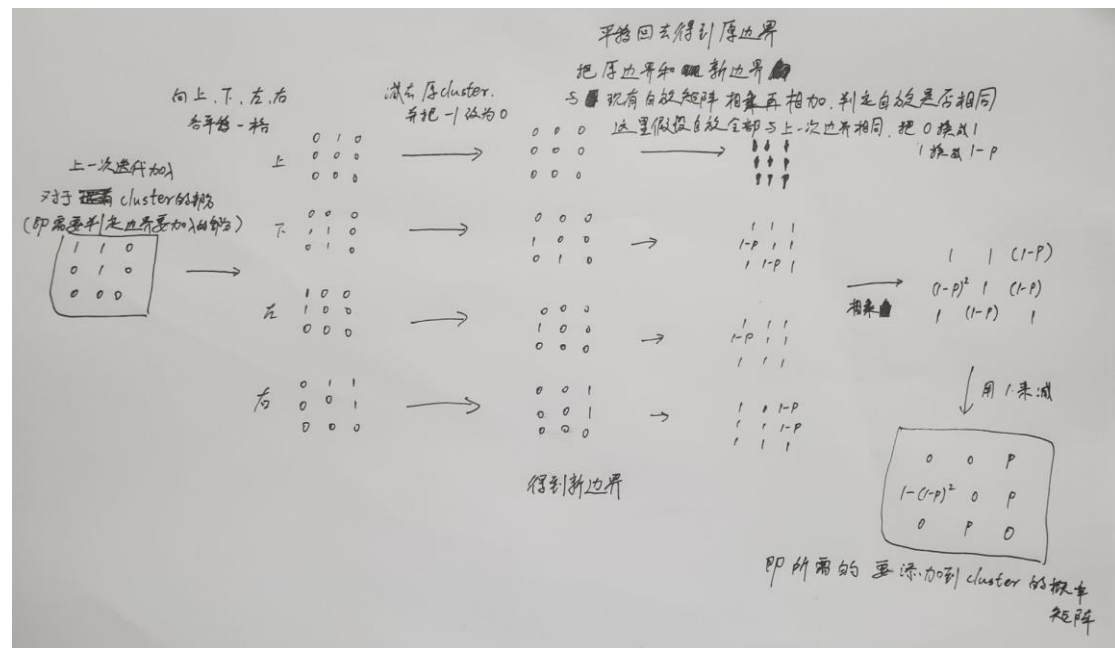 平移回去得到原边界
把原边界和新边界
与现有自旋矩阵相乘再相加,判定自旋是否相同
这里假设自旋全部与上一次边界相同,把0换成1
1换成1-P
向上、下、左、右
各平移一格
减去原cluster,
并把-1改为0
上一次迭代加入
对于cluster的部分
(即需要判定边界要加入的部分)
1 1 0
0 1 0
0 0 0
上
0 1 0
0 0 0
0 0 0
0 0 0
0 0 0
0 0 0
下
0 0 0
1 1 0
0 1 0
0 0 0
1 0 0
0 1 0
1 1 1
1-P 1 1
1 1-P 1
左
1 0 0
1 0 0
0 0 0
0 0 0
1 0 0
0 0 0
1 1 1
1-P 1 1
1 1 1
右
0 1 1
0 0 1
0 0 0
0 0 1
0 0 1
0 0 0
1 1 1-P
1 1 1-P
1 1 1
得到新边界
相乘
1 1 (1-P)
(1-P)² 1 (1-P)
1 (1-P) 1
用1来减
0 0 P
1-(1-P)² 0 P
0 P 0
即所需的要添加到cluster的概率
矩阵